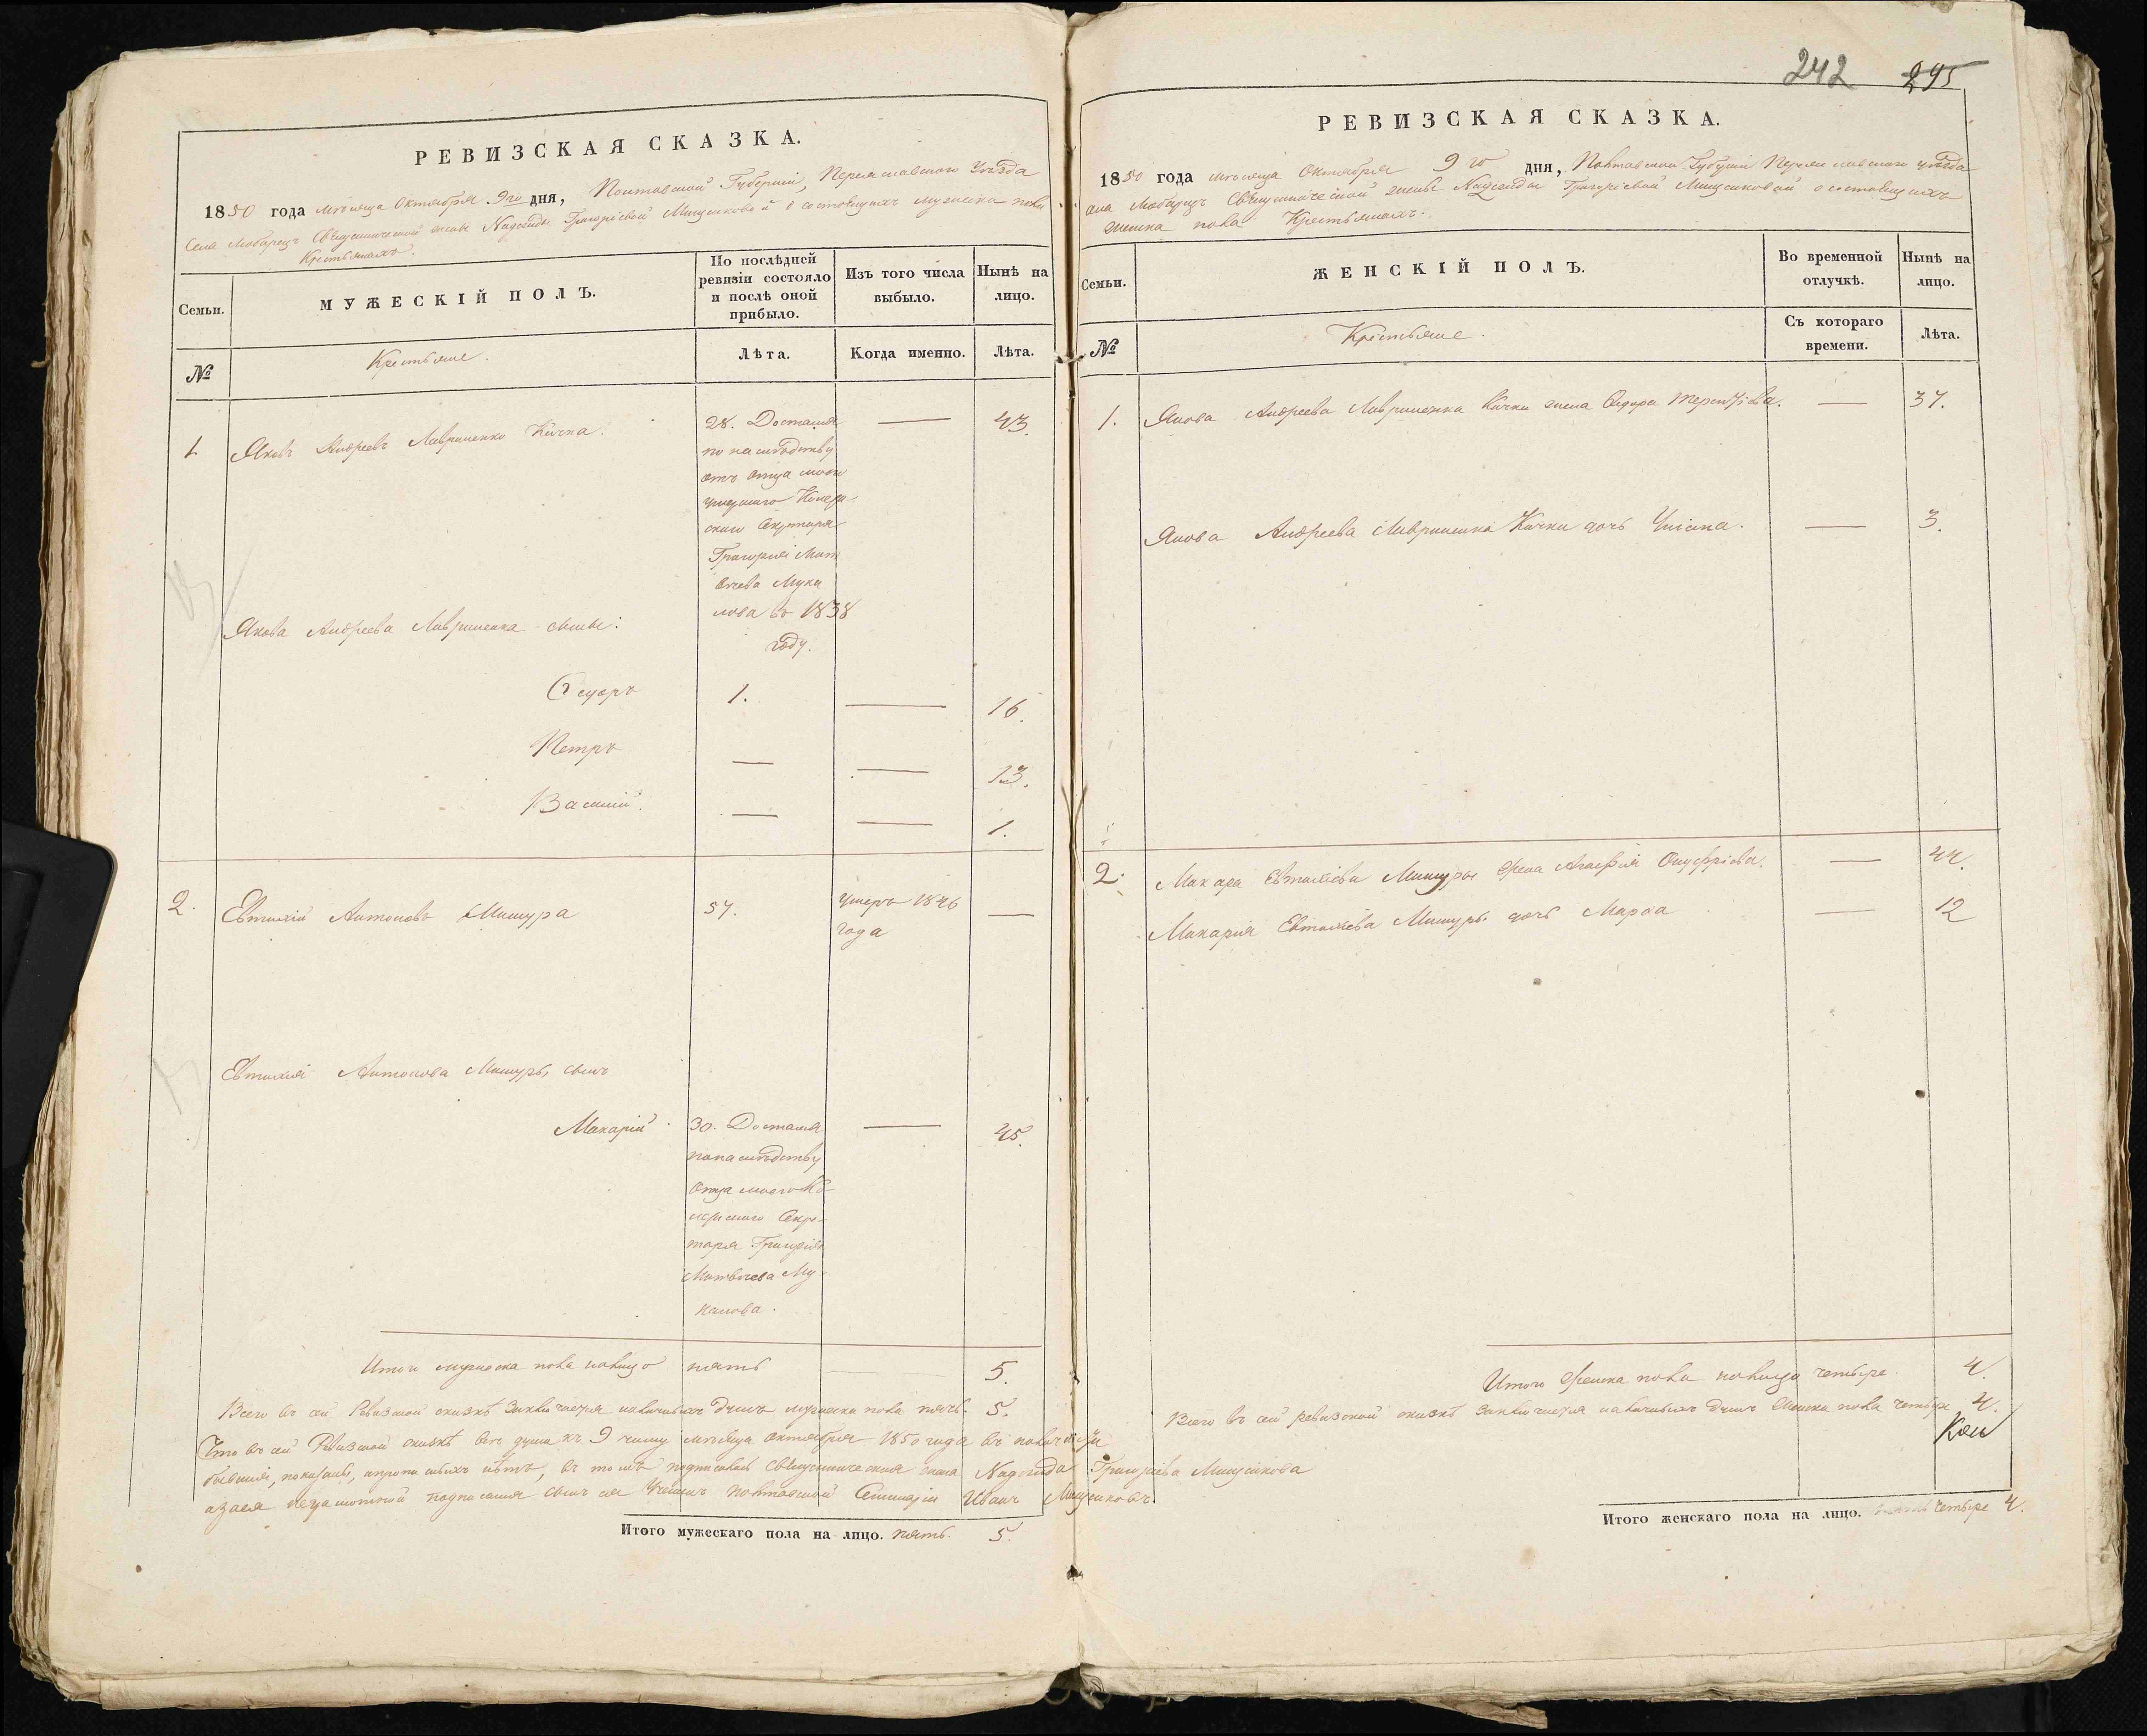 242 295
РЕВИЗСКАЯ СКАЗКА.
1850 года мѣсяца Октября 9го дня, Полтавской Губерніи, Переяславского Уѣзда
Села Священнической жены Надежды Григорієвой о состоящихъ мужеска пола
Крестьянахъ.
Семьи.
МУЖЕСКІЙ ПОЛЪ.
По послѣдней
ревизіи состояло
и послѣ оной
прибыло.
Изъ того числа
выбыло.
Нынѣ на
лицо.
№
Крестьяне.
Лѣта.
Когда именно.
Лѣта.
1. Яковъ Андреевъ Лавриненко Кичка. 28. Достался — 43.
по наслѣдству
отъ отца моего
умершаго
скаго Секретаря
Григорія Мат
вѣева Мука
лова въ 1838
году.
Якова Андреева Лавриненка сыны:
Ѳедоръ 1. — 16.
Петръ — — 13.
Василій. — — 1.
2. Евтихій Антоновъ Мишура 57. умеръ 1846 —
года
Евтихія Антонова Мишуры сынъ
Макарій. 30. Достался — 45.
по наслѣдству
отца моего Ко-
лежскаго Секре-
таря Григорія
Матвѣева Му-
калова.
Итого мужеска пола налицо пять — 5.
Всего въ сей Ревизской сказкѣ заключается наличныхъ душъ мужеска пола пять 5.
Что въ сей Ревизской сказкѣ всѣ души къ 9 числу мѣсяца Октября 1850 года въ
бывшія, показаны, и прописныхъ нѣтъ, въ томъ подписалась Священническая жена Надежда Григорієва
а за ея подписался сынъ ея Полтавской Семинаріи Иванъ
Итого мужескаго пола на лицо. пять. 5.
РЕВИЗСКАЯ СКАЗКА.
1850 года мѣсяца Октября 9го дня, Полтавской Губерніи Переяславского уѣзда
Священнической жены Надежды Григорієвой о состоящихъ
женска пола Крестьянахъ.
Семьи.
ЖЕНСКІЙ ПОЛЪ.
Во временной
отлучкѣ.
Нынѣ на
лицо.
№
Крестьяне.
Съ котораго
времени.
Лѣта.
1. Якова Андреева Лавриненка Кички жена — 37.
Якова Андреева Лавриненка Кички дочь — 3.
2. Макара Евтихієва Мишуры жена Агафія Онуфрієва. — 44.
Макарія Евтихієва Мишуры дочь Марѳа — 12
Итого женска пола налицо четыре 4.
Всего въ сей ревизской сказкѣ заключается наличныхъ душъ женска пола четыре 4.
Итого женскаго пола на лицо. четыре 4.